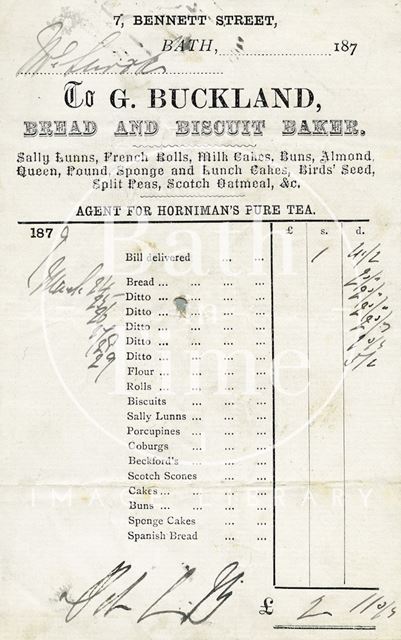 7, BENNETT STREET,
BATH, 187
To G. BUCKLAND,
BREAD AND BISCUIT BAKER.
Sally Lunns, French Rolls, Milk Cakes, Buns, Almond,
Queen, Pound, Sponge and Lunch Cakes, Birds' Seed,
Split Peas, Scotch Oatmeal, &c.
AGENT FOR HORNIMAN'S PURE TEA.
1879 £ s. d.
Bill delivered ... ... 1 4 1/2
March 24 Bread ... ... ...
25 Ditto ... ... ...
26 Ditto ... ... ...
Ditto ... ... ...
28 Ditto ... ... ...
29 Ditto ... ... ...
Flour ... ... ...
Rolls ... ... ...
Biscuits ... ...
Sally Lunns ... ... ...
Porcupines ... ...
Coburgs ... ...
Beckford's ... ...
Scotch Scones ... ...
Cakes ... ... ...
Buns ... ... ...
Sponge Cakes ... ...
Spanish Bread ... ...
£ 2
Bath in Time
IMAGE LIBRARY